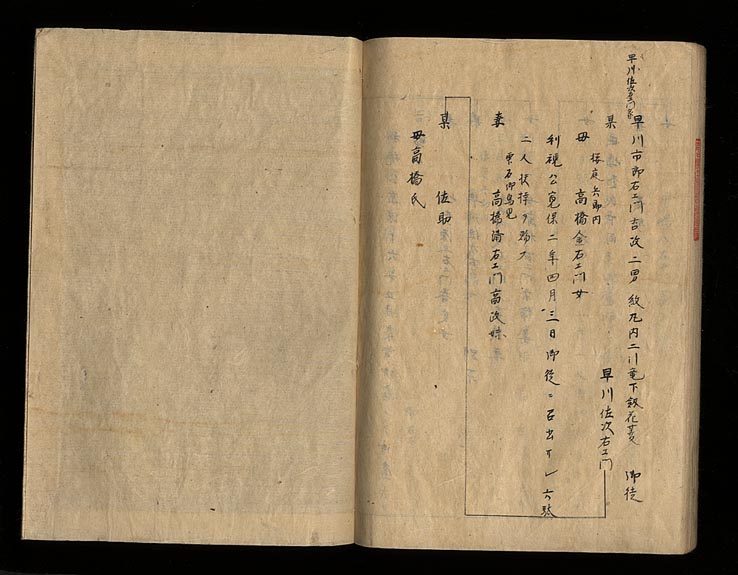 早川佐次右エ門家
早川市郎右エ門吉政二男 紋丸内二川竜下釼花菱 御徒
早川佐次右エ門
某
桜庭兵助内
母 高橋金右エ門女
利視公寛保二年四月三日御徒ニ召出サレ六駄
二人扶持ヲ賜フ
雫石御鳥見
妻 高橋清右エ門高政妹
某 佐助
母高橋氏